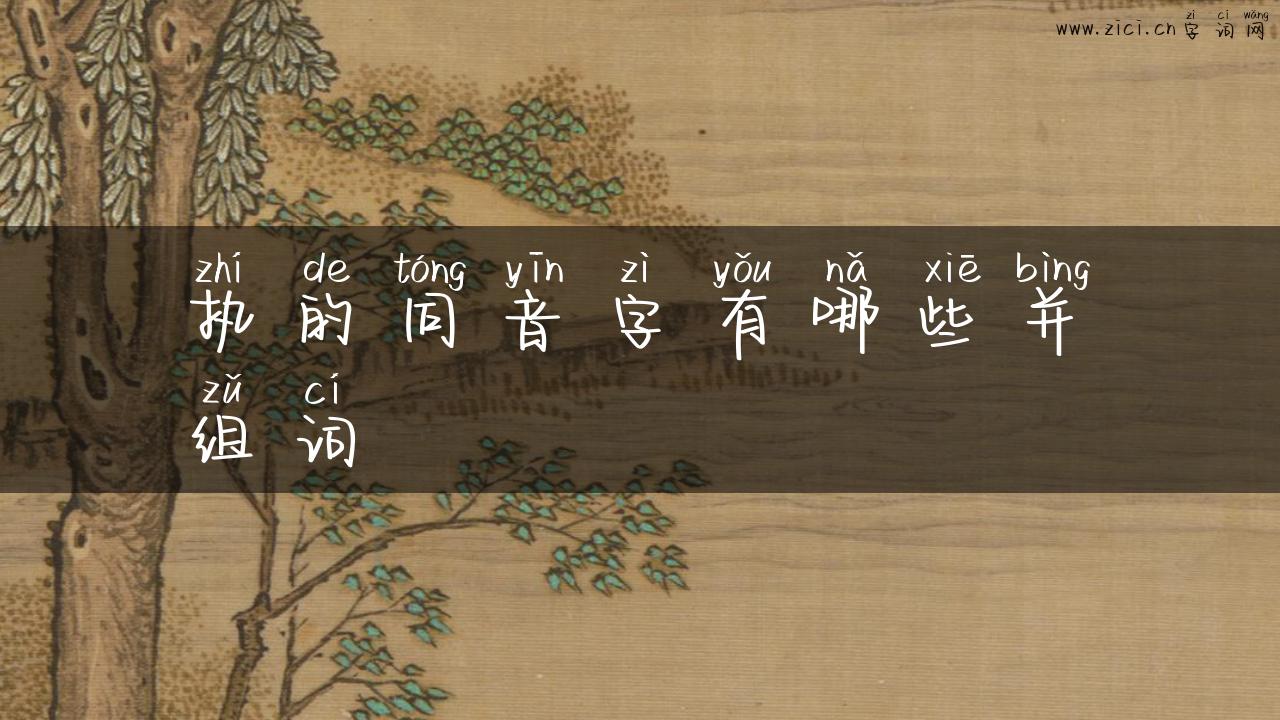 zì cí wǎng
www.zici.cn 字词网
zhí de tóng yīn zì yǒu nǎ xiē bìng
执的同音字有哪些并
zǔ cí
组词